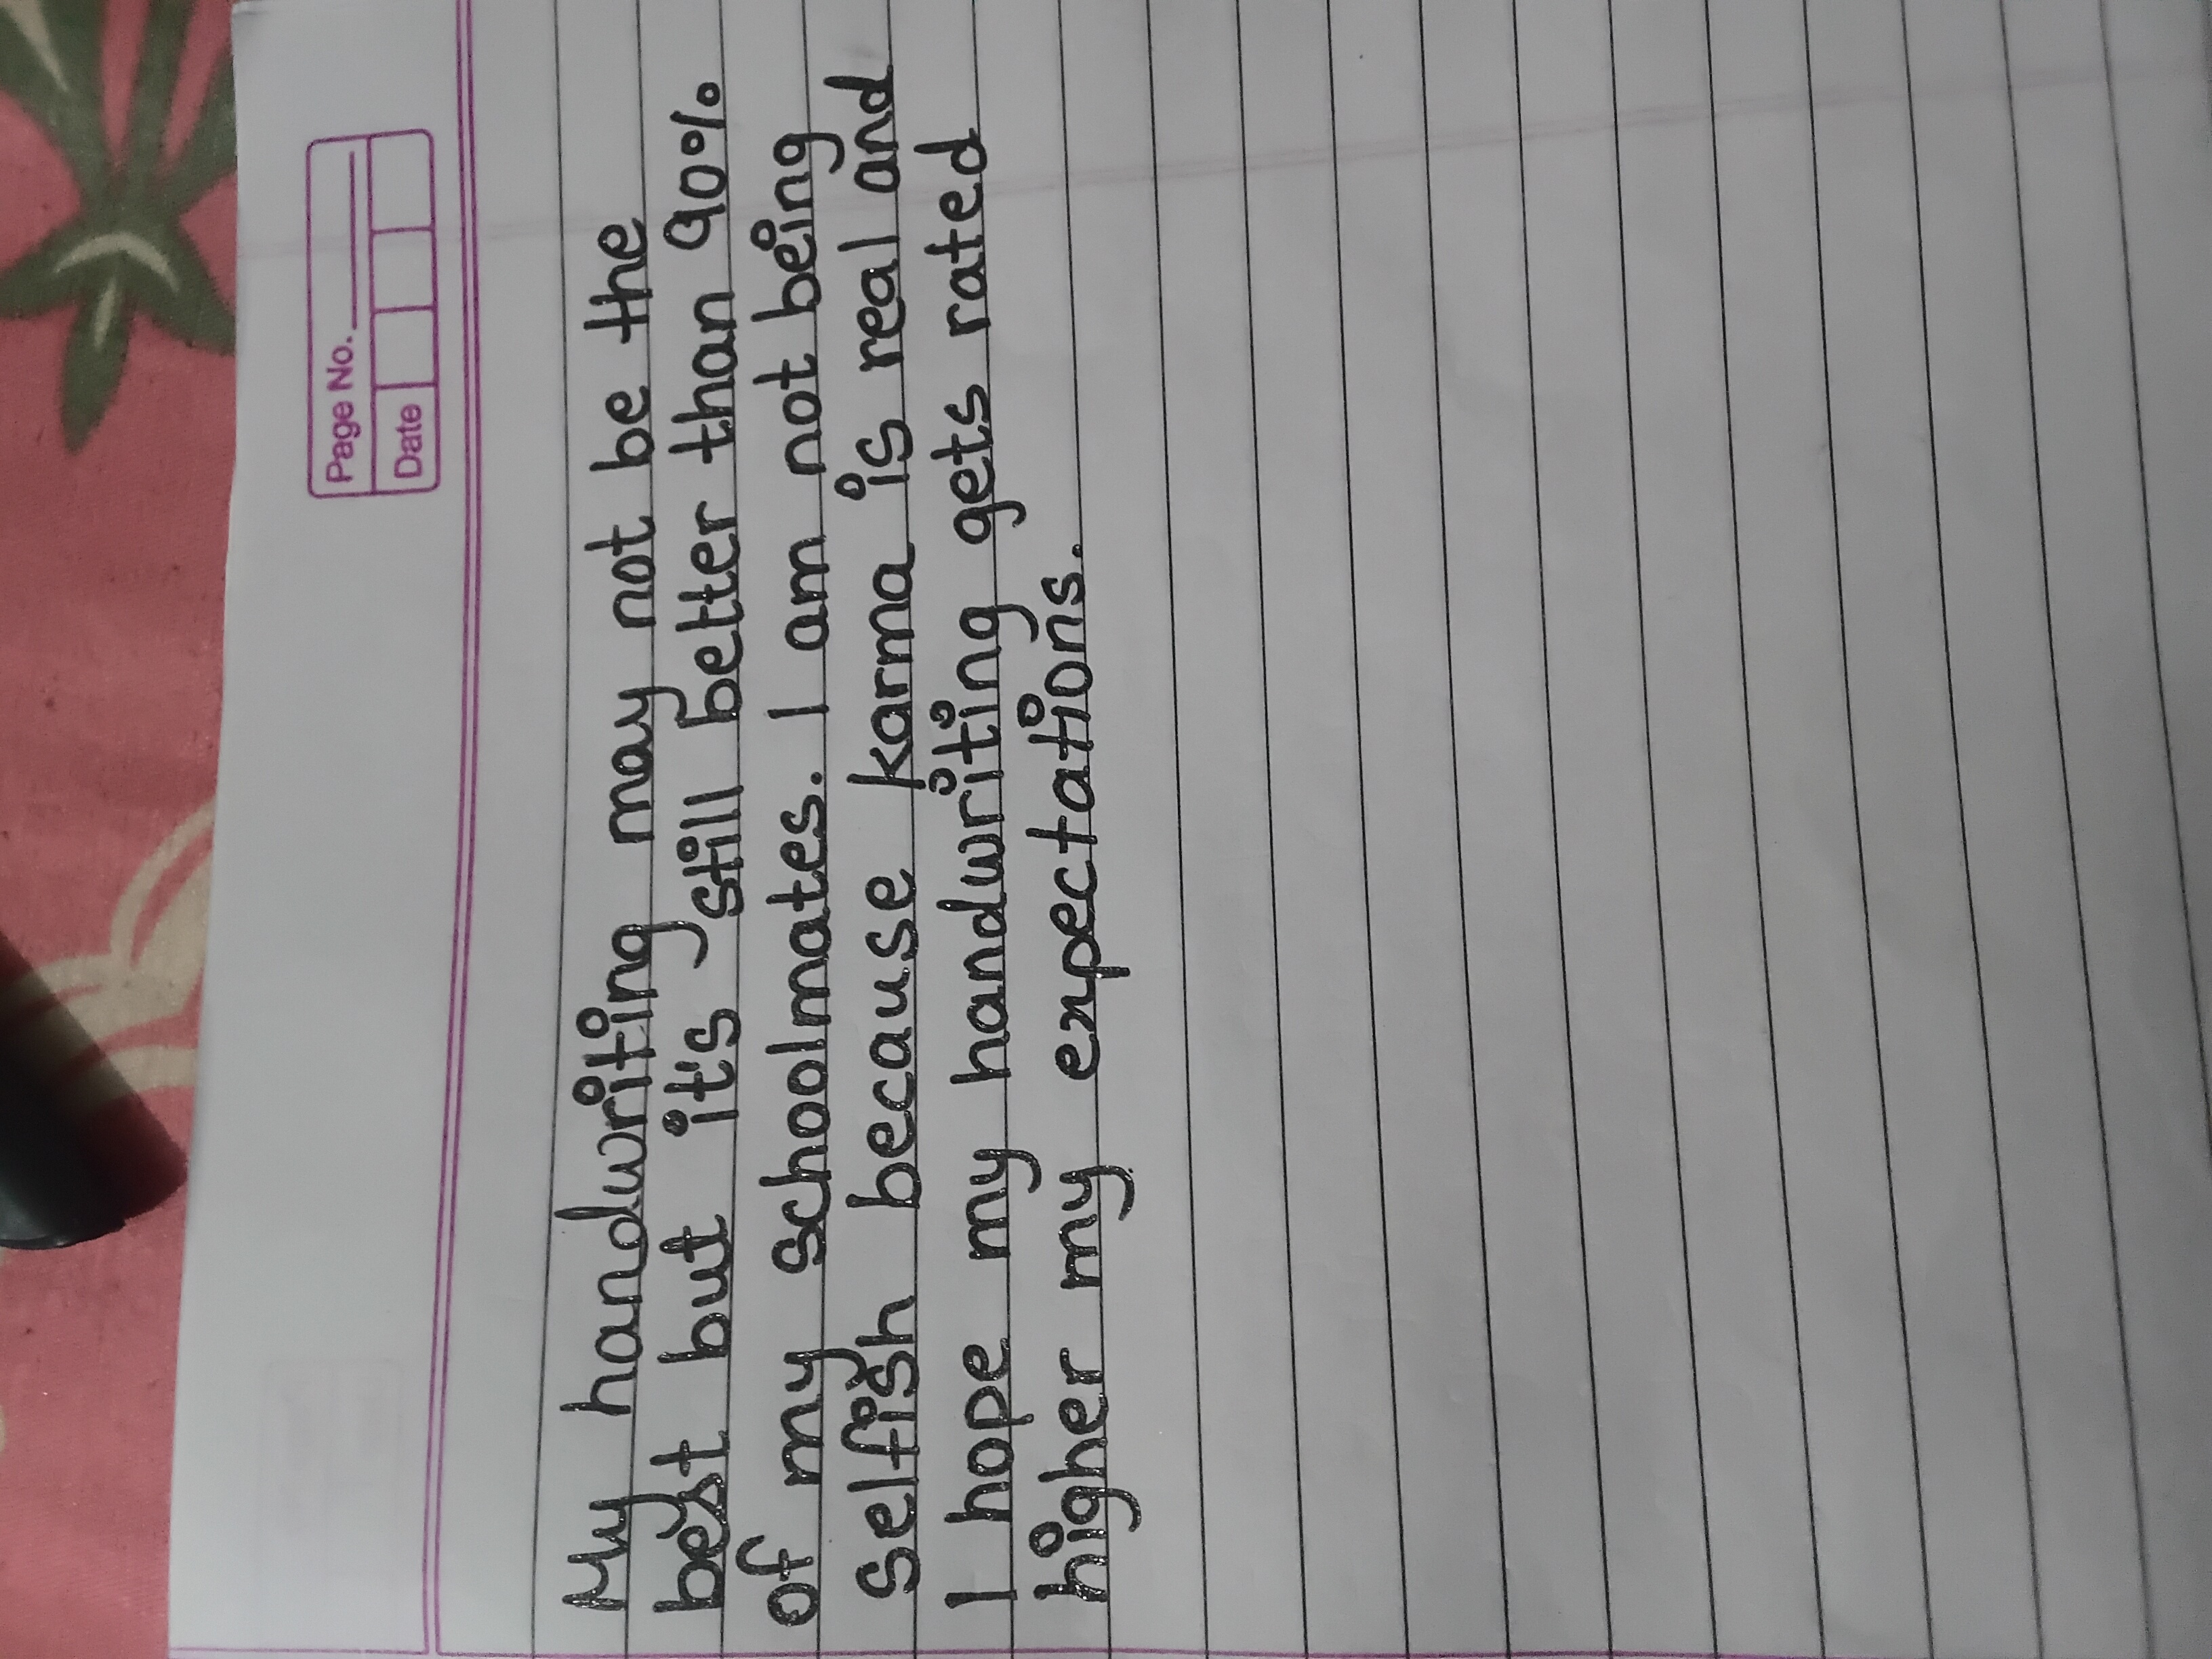 Page No.
Date
My handwriting may not be the
best but it's still better than 90%
of my schoolmates. I am not being
selfish because karma is real and
I hope my handwriting gets rated
higher my expectations.